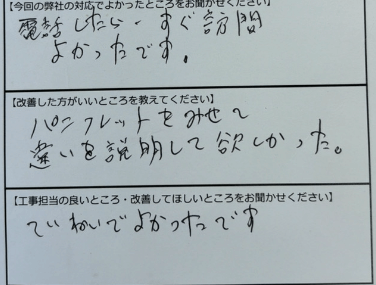 【今回の弊社の対応でよかったところをお聞かせください】
電話したら、すぐ訪問
よかったです。
【改善した方がいいところを教えてください】
パンフレットをみせて
違いを説明して欲しかった。
【工事担当の良いところ・改善してほしいところをお聞かせください】
ていねいでよかったです